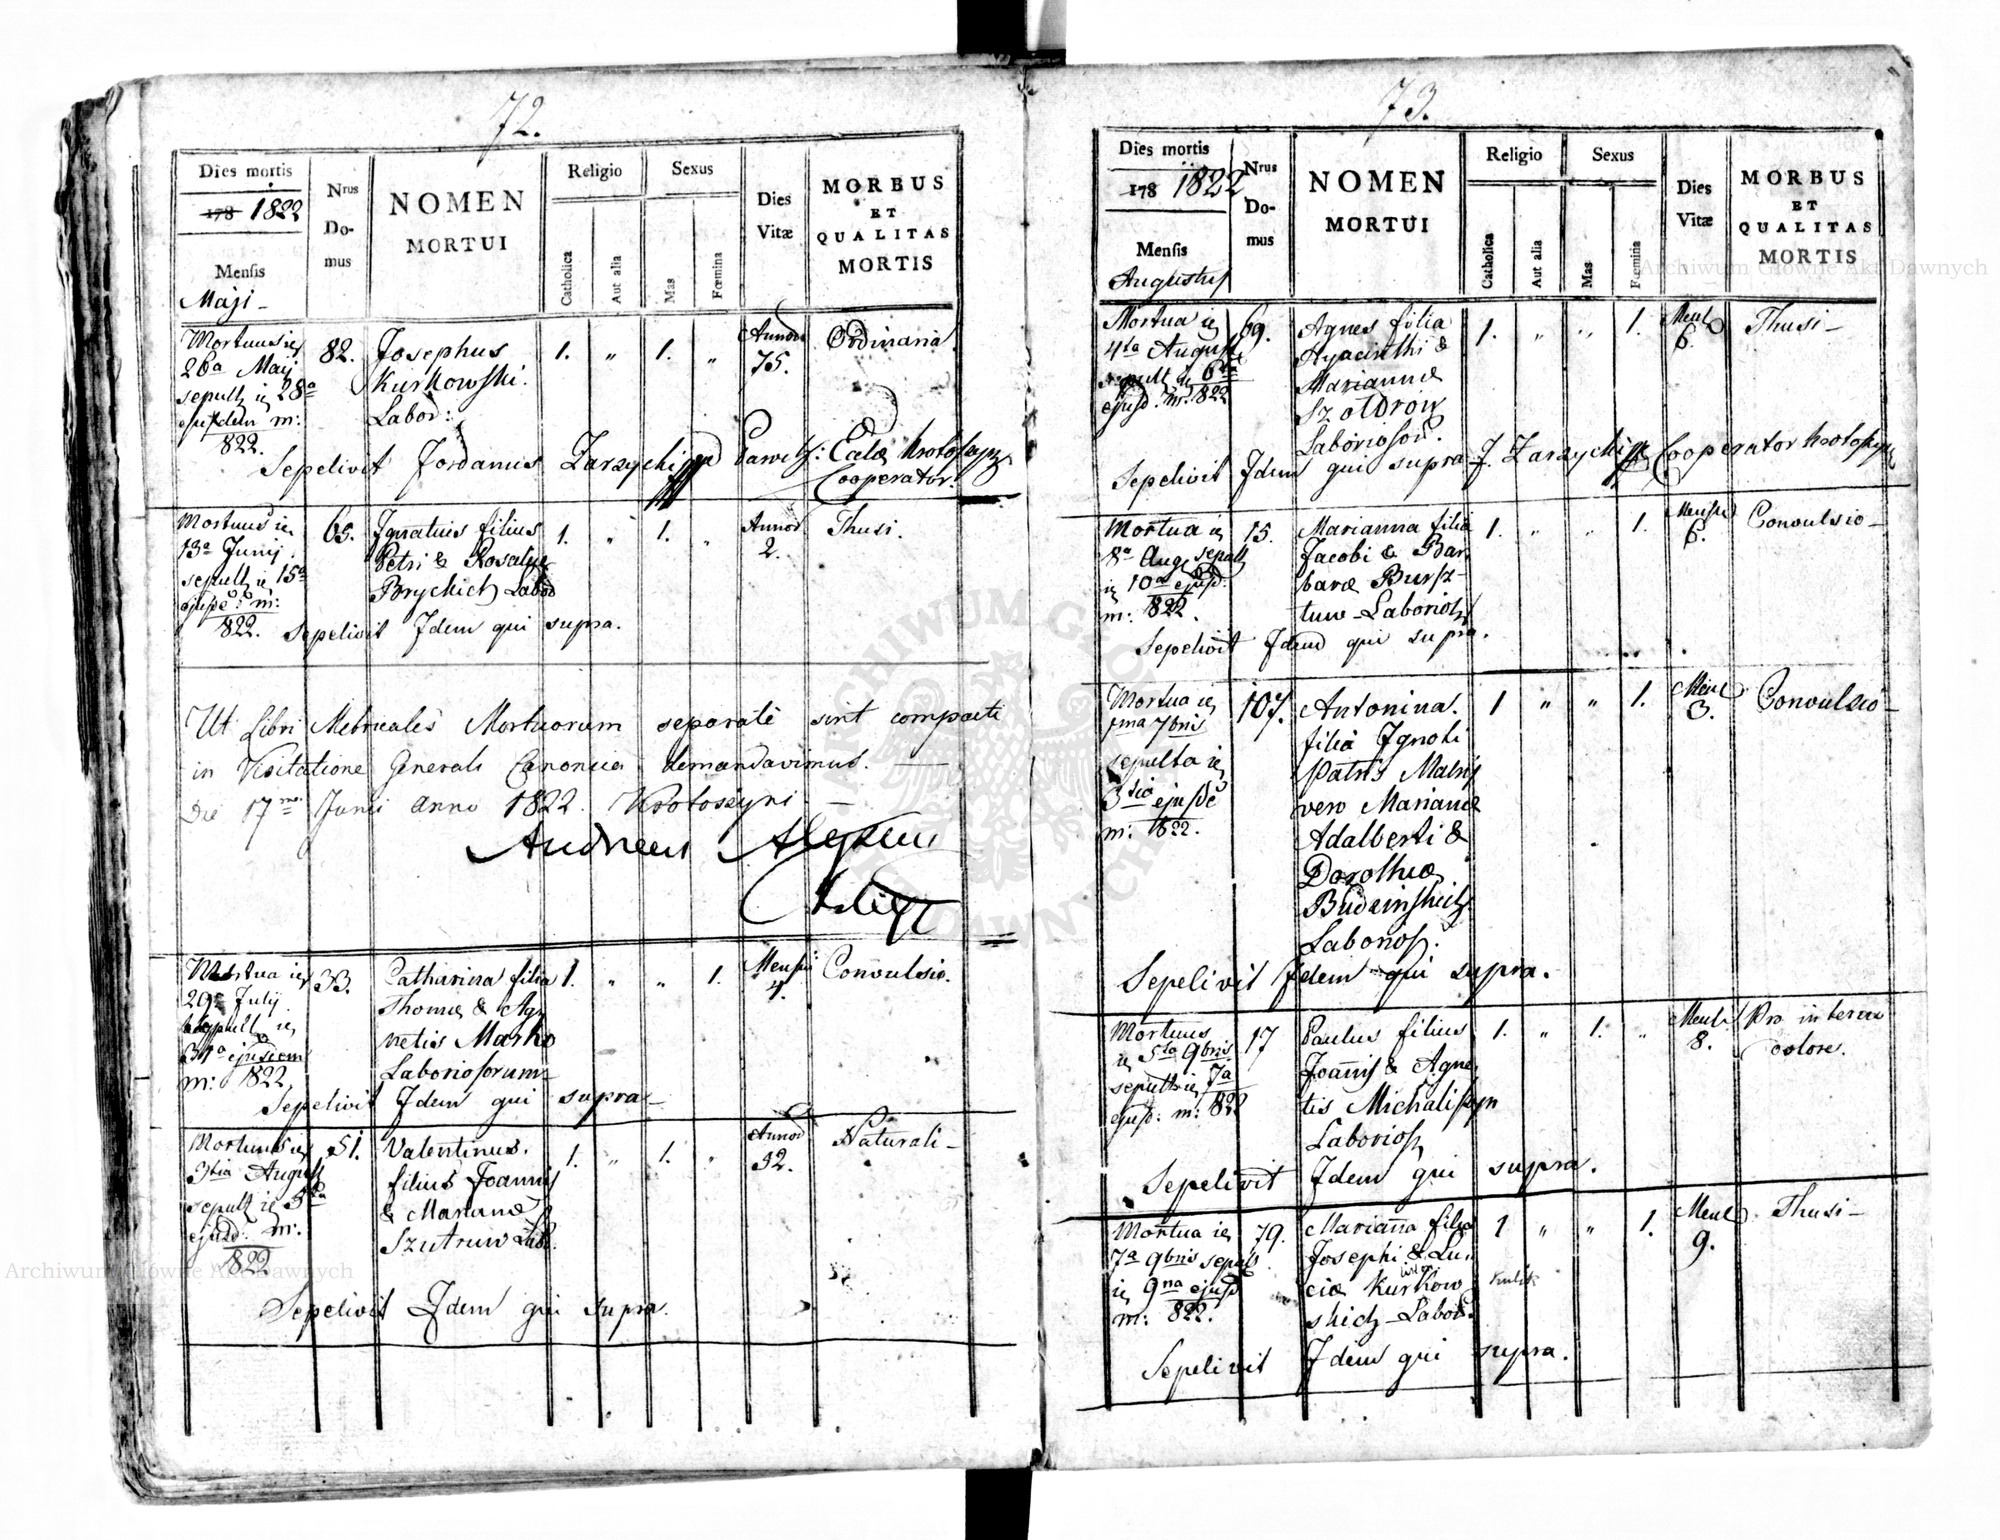 72.
Dies mortis
178 1822
Mensis
Maji -
Nrus Do- mus
NOMEN
MORTUI
Religio
Catholica
Aut alia
Sexus
Mas
Fœmina
Dies
Vitæ
MORBUS
ET
QUALITAS
MORTIS
Mortuus ie 82. Josephus 1. „ 1. „ Annor Ordinaria.
26a Maij Kurkowski. 75.
sepult ie 28a Labor:
ejusdem m:
822.
Sepelivit Jordanus Zarzychi Cooperator.
Mortuus ie 65. Ignatius filius 1. „ 1. „ Annor Thusi.
13a Junij Petri & Rosaliæ 2.
sepult ie 15a Brychich Labor
ejusde: m:
822. Sepelivit Idem qui supra.
Ut Libri Metricales Mortuorum separatè sint compacti
in Visitatione Generali Canonica demandavimus. —
Die 17me Junii Anno 1822. Krotoszyni —
Andreas
Mortua ie 33. Catharina filia 1. „ „ 1. Mensii Convulsio.
29a July Thomæ & Ag-
sepult ie netis Marko
31a ejusdem Laboriosorum
m: 1822.
Sepelivit Idem qui supra -
Mortuus ie 51. Valentinus. 1. „ 1. „ Annor Naturali -
3tia August filius Joannis 32.
sepult ie 5ta & Mariannæ
ejusd. m: Szutrow Lab.
1822
Sepelivit Idem qui supra.
73.
Dies mortis
178 1822
Mensis
Augustus
Nrus Do- mus
NOMEN
MORTUI
Religio
Catholica
Aut alia
Sexus
Mas
Fœmina
Dies
Vitæ
MORBUS
ET
QUALITAS
MORTIS
Mortua ie 69. Agnes filia 1. „ „ 1. Mens Thusi -
4ta August Hyacinthi & 6.
sepult ie 6ta Mariannæ
ejusd: m: 822 Szoldrow
Laborioso.
Sepelivit Idem qui supra J. Zarzychi Cooperator
Mortua ie 15. Marianna filia 1. „ „ 1. Mensu Convulsio -
8a Aug. sepult Jacobi & Bar 6.
ie 10a ejusd: baræ Bursz-
m: 1822. tow - Laborios
Sepelivit Idem qui supra.
Mortua ie 107. Antonina. 1 „ „ 1. Mens Convulsio -
1ma 7bris filia Ignoti 3.
sepulta ie Patris Matris
3tio ejusde vero Mariannæ
m: 1822. Adalberti &
Dorotheæ
Budzinskich
Laborios.
Sepelivit Idem qui supra.
Mortuus 17 Paulus filius 1. „ 1. „ Mens Pro interiore
ie 5ta 9bris Joannis & Agne- 8. dolore.
sepult ie 7a tis Michaliszyn
ejusd: m: 822 Laborios
Sepelivit Idem qui supra.
Mortua ie 79. Marianna filia 1 „ „ 1. Mens Thusi -
7a 9bris sepult Josephi & Lu- 9.
ie 9na ejusd ciæ Kurkow
m: 822. skich - Labor.
Sepelivit Idem qui supra.
ARCHIWUM GŁÓWNE AKT DAWNYCH
Archiwum Główne Akt Dawnych
Archiwum Główne Akt Dawnych